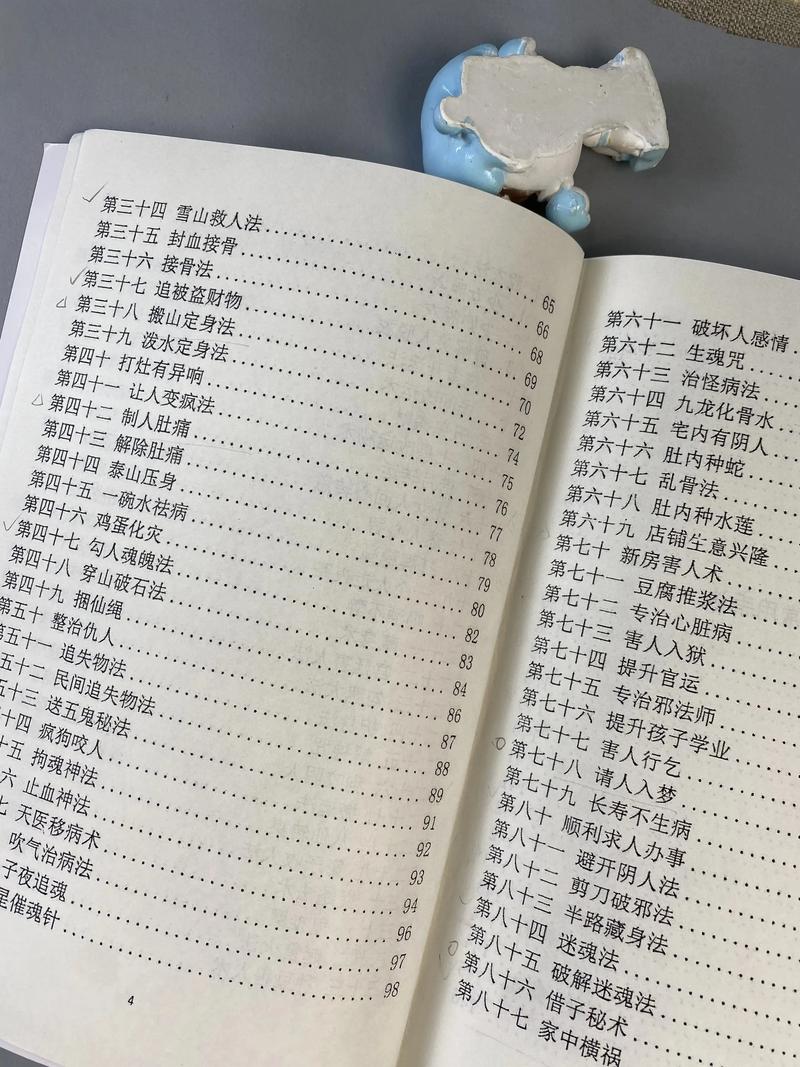 第三十四 雪山救人法........65
第三十五 封血接骨........66
第三十六 接骨法........68
第三十七 追被盗财物........69
第三十八 搬山定身法........70
第三十九 泼水定身法........72
第四十 打灶有异响........74
第四十一 让人变疯法........75
第四十二 制人肚痛........76
第四十三 解除肚痛........77
第四十四 泰山压身........78
第四十五 一碗水祛病........79
第四十六 鸡蛋化灾........80
第四十七 勾人魂魄法........82
第四十八 穿山破石法........83
第四十九 捆仙绳........84
第五十 整治仇人........86
五十一 追失物法........87
五十二 民间追失物法........88
五十三 送五鬼秘法........89
十四 疯狗咬人........91
十五 拘魂神法........92
六 止血神法........93
七 天医移病术........94
吹气治病法........96
子夜追魂........97
星催魂针........98
4
第六十一 破坏人感情
第六十二 生魂咒
第六十三 治怪病法
第六十四 九龙化骨水
第六十五 宅内有阴人
第六十六 肚内种蛇
第六十七 乱骨法
第六十八 肚内种水莲
第六十九 店铺生意兴隆
第七十 新房害人术
第七十一 豆腐推浆法
第七十二 专治心脏病
第七十三 害人入狱
第七十四 提升官运
第七十五 专治邪法师
第七十六 提升孩子学业
第七十七 害人行乞
第七十八 请人入梦
第七十九 长寿不生病
第八十 顺利求人办事
第八十一 避开阴人法
第八十二 剪刀破邪法
第八十三 半路藏身法
第八十四 迷魂法
第八十五 破解迷魂法
第八十六 借子秘术
第八十七 家中横祸